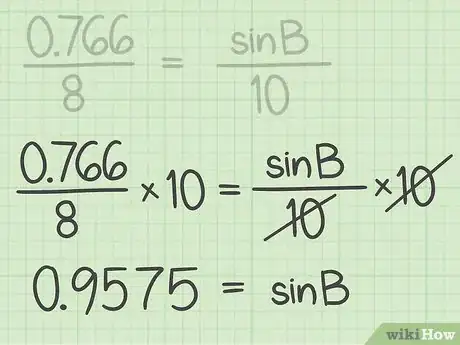 0.766/8 = sinB/10
0.766/8 × 10 = sinB/10 × 10
0.9575 = sinB
wikiHow